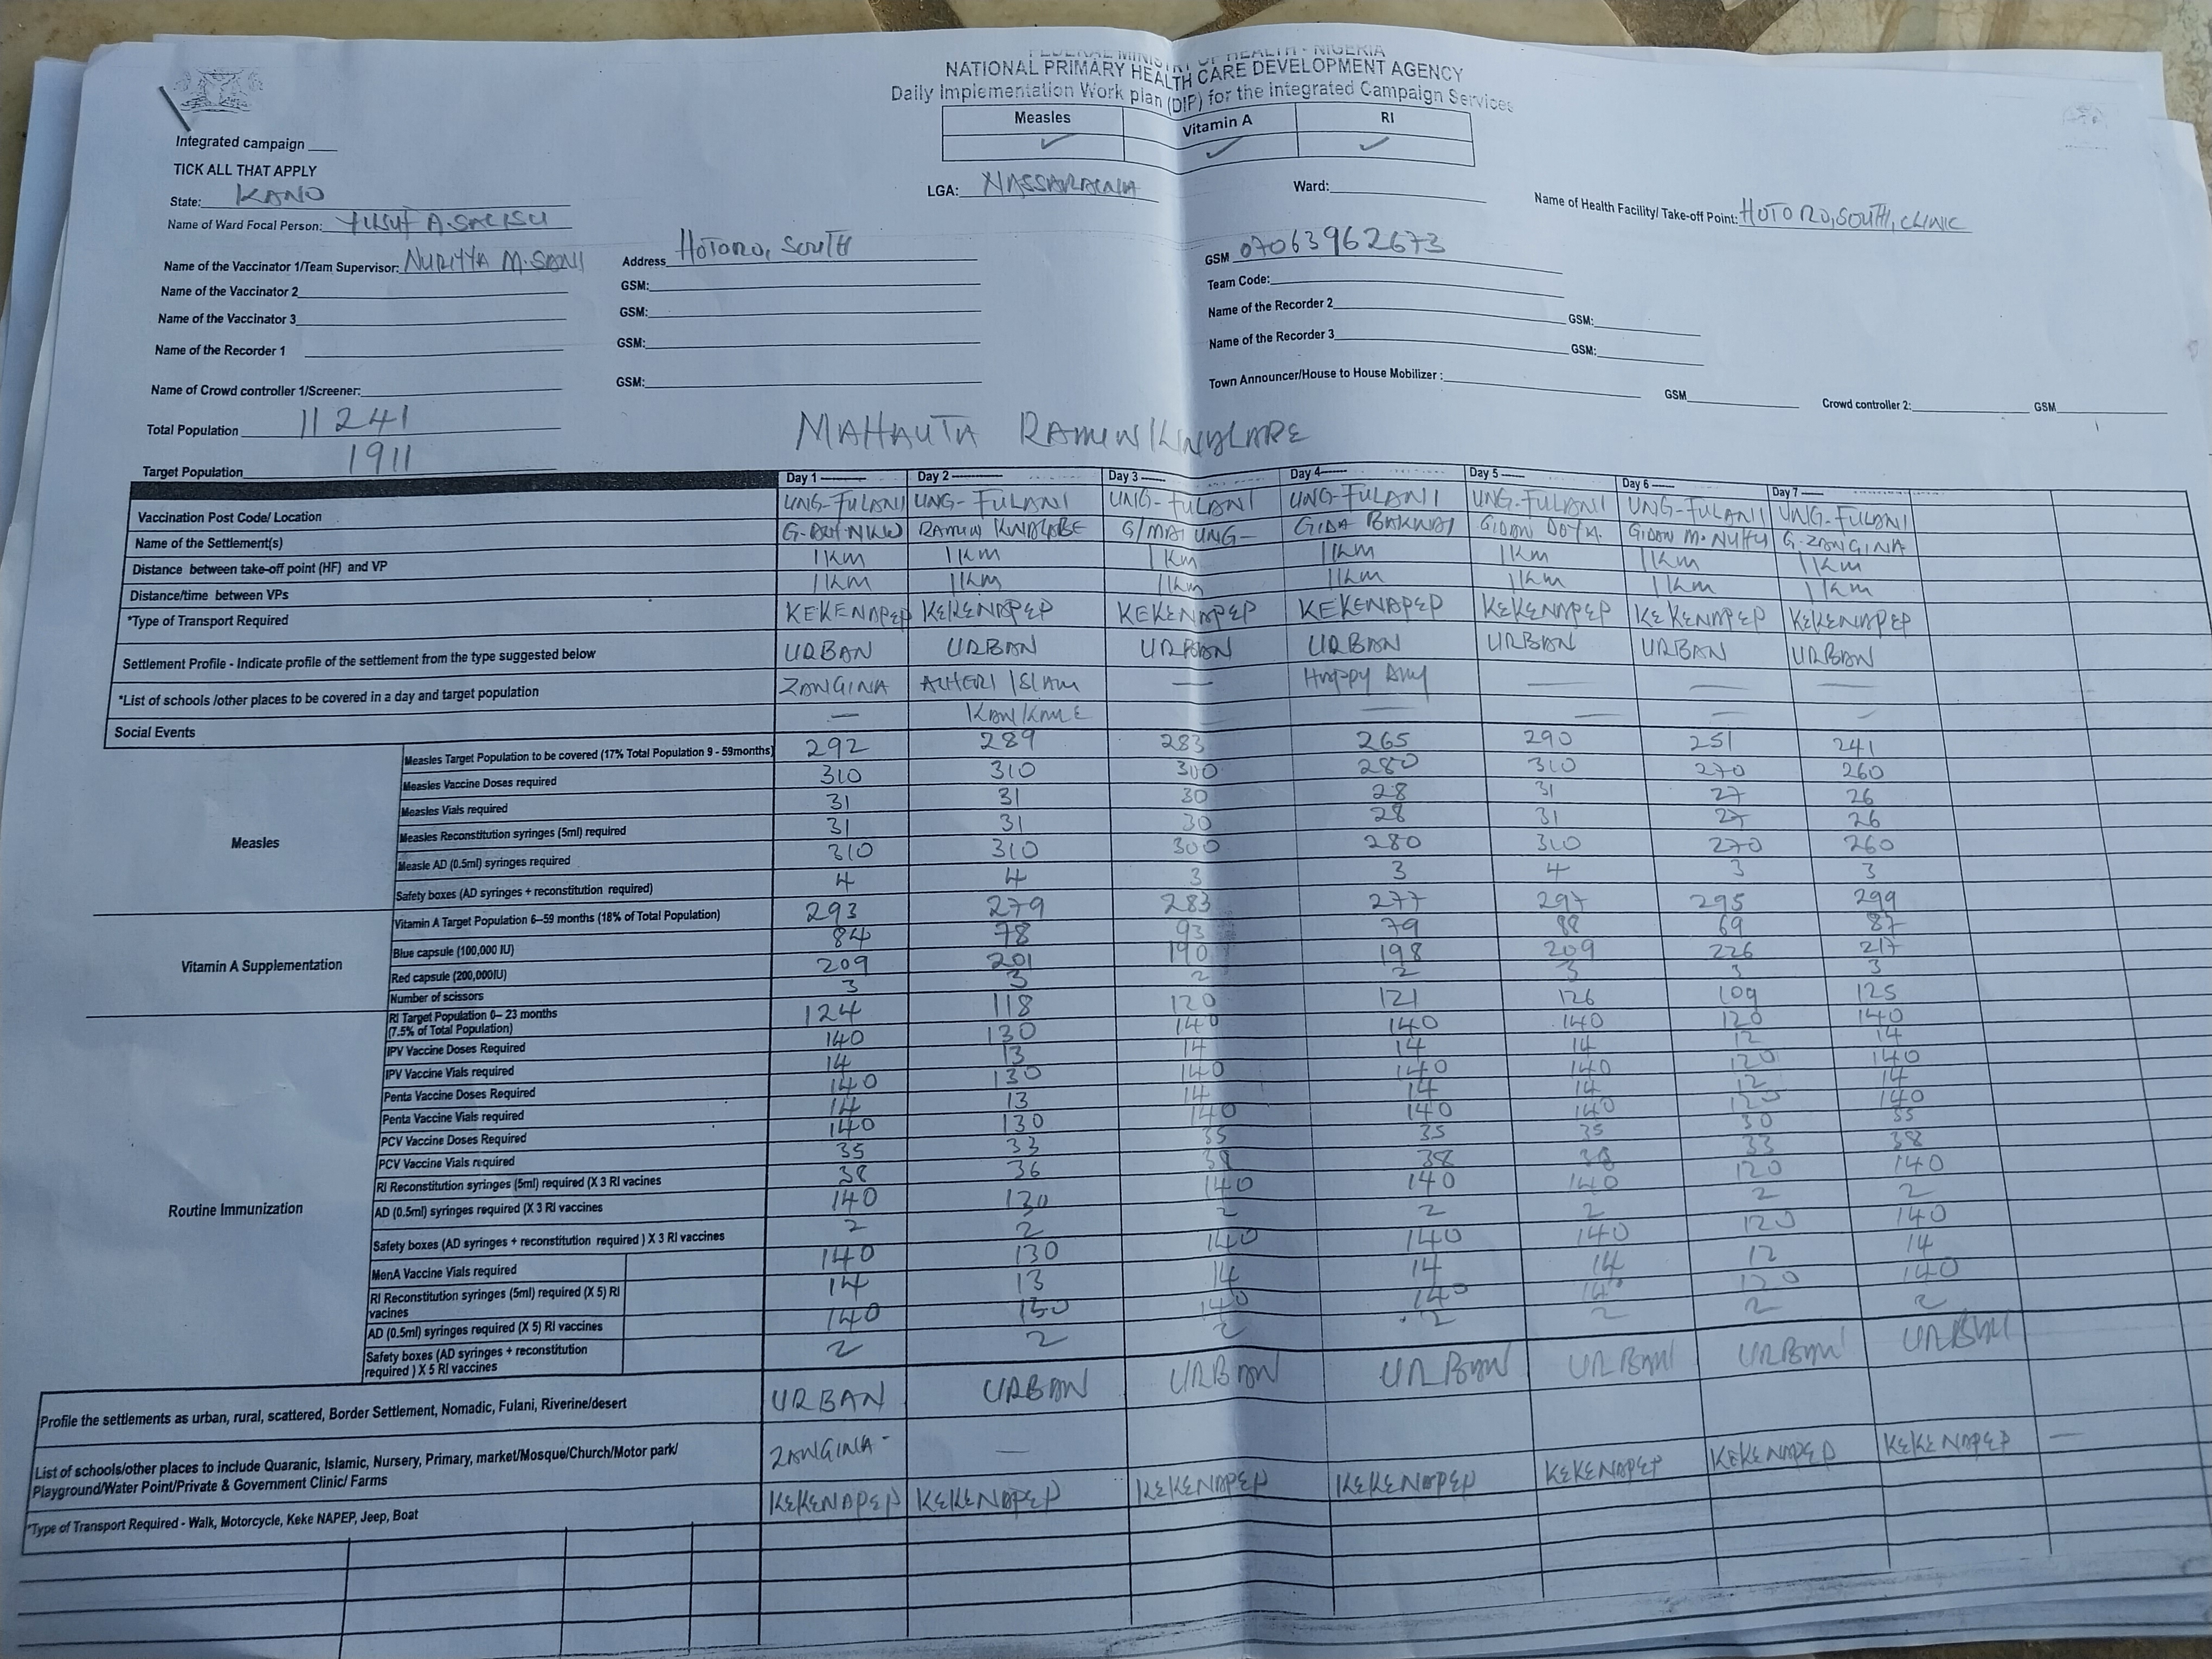 NATIONAL PRIMARY HEALTH CARE DEVELOPMENT AGENCY
Daily Implementation Work plan (DIP) for the Integrated Campaign Services
Integrated campaign
TICK ALL THAT APPLY
Measles Vitamin A RI
✓ ✓ ✓
State: KANO LGA: NASSARAWA Ward: Name of Health Facility/ Take-off Point: HOTORO, SOUTH, CLINIC
Name of Ward Focal Person:
Name of the Vaccinator 1/Team Supervisor: Address HOTORO, SOUTH GSM 07063962673
Name of the Vaccinator 2 GSM: Team Code:
Name of the Vaccinator 3 GSM: Name of the Recorder 2 GSM:
Name of the Recorder 1 GSM: Name of the Recorder 3 GSM:
Name of Crowd controller 1/Screener: GSM: Town Announcer/House to House Mobilizer: GSM Crowd controller 2: GSM
Total Population 11241 MAHAUTA RAMIN
Target Population 1911
Day 1 Day 2 Day 3 Day 4 Day 5 Day 6 Day 7
Vaccination Post Code/ Location UNG-FULANI UNG-FULANI UNG-FULANI UNG-FULANI UNG-FULANI UNG-FULANI UNG-FULANI
Name of the Settlement(s) RAMIN G/MAI UNG- GIDA GIDAN GIDAN G.
Distance between take-off point (HF) and VP 1KM 1KM 1KM 1KM 1KM 1KM 1KM
Distance/time between VPs 1KM 1KM 1KM 1KM 1KM 1KM 1KM
*Type of Transport Required KEKENAPEP KEKENAPEP KEKENAPEP KEKENAPEP KEKENAPEP KEKENAPEP KEKENAPEP
Settlement Profile - Indicate profile of the settlement from the type suggested below URBAN URBAN URBAN URBAN URBAN URBAN URBAN
*List of schools /other places to be covered in a day and target population ZANGINA ALHERI ISLAM — HAPPY — — —
Social Events — — — — — —
Measles
Measles Target Population to be covered (17% Total Population 9 - 59months) 292 289 283 265 290 251 241
Measles Vaccine Doses required 310 310 300 280 310 270 260
Measles Vials required 31 31 30 28 31 27 26
Measles Reconstitution syringes (5ml) required 31 31 30 28 31 27 26
Measle AD (0.5ml) syringes required 310 310 300 280 310 270 260
Safety boxes (AD syringes + reconstitution required) 4 4 3 3 4 3 3
Vitamin A Supplementation
Vitamin A Target Population 6–59 months (18% of Total Population) 293 279 283 277 297 295 299
Blue capsule (100,000 IU) 84 78 93 79 88 69 87
Red capsule (200,000IU) 209 201 190 198 209 226 217
Number of scissors 3 3 2 2 3 3 3
Routine Immunization
RI Target Population 0– 23 months
(7.5% of Total Population) 124 118 120 121 126 109 125
IPV Vaccine Doses Required 140 130 140 140 140 120 140
IPV Vaccine Vials required 14 13 14 14 14 12 14
Penta Vaccine Doses Required 140 130 140 140 140 120 140
Penta Vaccine Vials required 14 13 14 14 14 12 14
PCV Vaccine Doses Required 140 130 140 140 140 120 140
PCV Vaccine Vials required 35 33 35 35 35 30 35
RI Reconstitution syringes (5ml) required (X 3 RI vacines 38 36 38 38 38 33 38
AD (0.5ml) syringes required (X 3 RI vaccines 140 130 140 140 140 120 140
Safety boxes (AD syringes + reconstitution required ) X 3 RI vaccines 2 2 2 2 2 2 2
MenA Vaccine Vials required 140 130 140 140 140 120 140
RI Reconstitution syringes (5ml) required (X 5) RI
vaccines 14 13 14 14 14 12 14
AD (0.5ml) syringes required (X 5) RI vaccines 140 140 140 120 140
Safety boxes (AD syringes + reconstitution
required ) X 5 RI vaccines 2 2 2 2 2 2 2
Profile the settlements as urban, rural, scattered, Border Settlement, Nomadic, Fulani, Riverine/desert URBAN URBAN URBAN URBAN URBAN URBAN URBAN
List of schools/other places to include Quaranic, Islamic, Nursery, Primary, market/Mosque/Church/Motor park/
Playground/Water Point/Private & Government Clinic/ Farms ZANGINA —
*Type of Transport Required - Walk, Motorcycle, Keke NAPEP, Jeep, Boat KEKENAPEP KEKENAPEP KEKENAPEP KEKENAPEP KEKENAPEP KEKENAPEP KEKENAPEP —